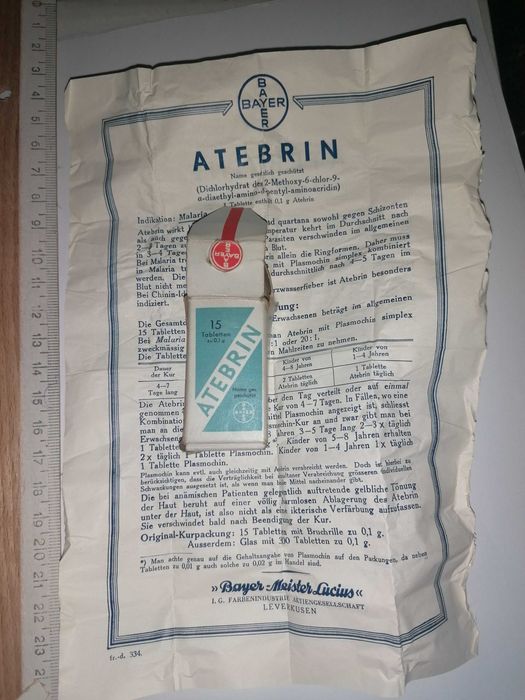 BAYER
BAYER
ATEBRIN
Name gesetzlich geschützt
(Dichlorhydrat des 2-Methoxy-6-chlor-9-
α-diaethyl-amino-δ-pentyl-aminoacridin)
1 Tablette enthält 0,1 g Atebrin
Indikation: Malaria quartana sowohl gegen Schizonten
Atebrin wirkt Temperatur kehrt im Durchschnitt nach
als auch gegen Parasiten verschwinden im allgemeinen
2— Tagen Blut.
in 3—4 Tagen allein die Ringformen. Daher muss
Bei Malaria mit Plasmochin simplex kombiniert
in Malaria durchschnittlich nach 4—5 Tagen im
werden. Die
Blut nicht Schwarzwasserfieber ist Atebrin besonders
Bei Chinin-
indiziert.
Die Gesamtd Erwachsenen beträgt im allgemeinen
15 Tabletten
Bei Malaria man Atebrin mit Plasmochin simplex
zweckmässig :1 oder 20:1.
Die Tablette Mahlzeiten zu nehmen.
Dauer der Kur
Kinder von 4—8 Jahren
Kinder von 1—4 Jahren
4—7 Tage lang
2 Tabletten Atebrin täglich
1 Tablette Atebrin täglich
Die Atebrin den Tag verteilt oder auf einmal
genommen Kur von 4—7 Tagen. In Fällen, wo eine
Kombination mit Plasmochin angezeigt ist, schliesst
man an die Plasmochin-Kur an und zwar gibt man bei
Erwachsenen 3—5 Tage lang 2—3 x täglich
1 Tablette Kinder von 5—8 Jahren erhalten
2 x täglich Kinder von 1—4 Jahren 1 x täglich
1 Tablette Plasmochin.
Plasmochin kann evtl. auch gleichzeitig mit Atebrin verabreicht werden. Doch ist hierbei zu
berücksichtigen, dass die Verträglichkeit bei simultaner Verabreichung grösseren individuellen
Schwankungen ausgesetzt ist, als wenn man beide Mittel nacheinander gibt.
Die bei anämischen Patienten gelegentlich auftretende gelbliche Tönung
der Haut beruht auf einer völlig harmlosen Ablagerung des Atebrin
unter der Haut, ist also nicht als eine ikterische Verfärbung aufzufassen.
Sie verschwindet bald nach Beendigung der Kur.
Original-Kurpackung: 15 Tabletten mit Bruchrille zu 0,1 g.
Ausserdem: Glas mit 300 Tabletten zu 0,1 g.
*) Man achte genau auf die Gehaltsangabe von Plasmochin auf den Packungen, da neben
Tabletten zu 0,01 g auch solche zu 0,02 g im Handel sind.
»Bayer-Meister Lucius«
I. G. FARBENINDUSTRIE AKTIENGESELLSCHAFT
LEVERKUSEN
fr.-d. 334.
BAYER
BAYER
15
Tabletten
zu 0,1 g
ATEBRIN
Name ges.
geschützt
BAYER
1 2 3 4 5 6 7 8 9 10 11 12 13 14 15 16 17 18 19 20 21 22 23